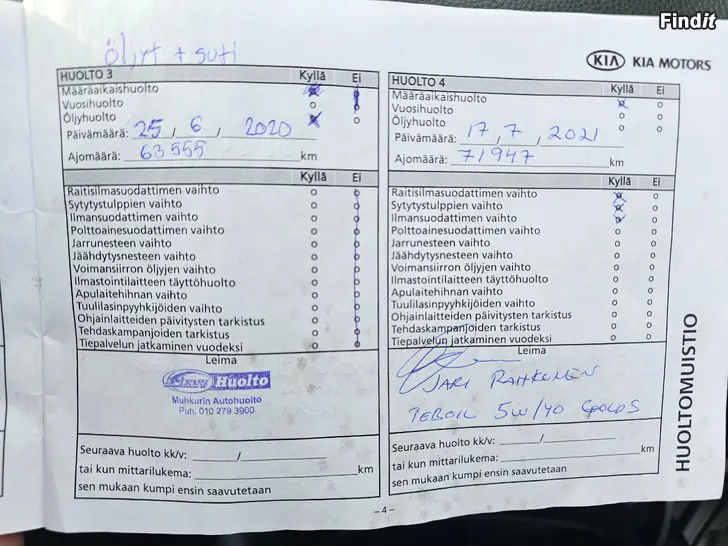 Findit
KIA KIA MOTORS
öljyt + suti
HUOLTO 3 Kyllä Ei
Määräaikaishuolto
Vuosihuolto
Öljyhuolto
Päivämäärä: 25 / 6 / 2020
Ajomäärä: 63555 km
Kyllä Ei
Raitisilmasuodattimen vaihto
Sytytystulppien vaihto
Ilmansuodattimen vaihto
Polttoainesuodattimen vaihto
Jarrunesteen vaihto
Jäähdytysnesteen vaihto
Voimansiirron öljyjen vaihto
Ilmastointilaitteen täyttöhuolto
Apulaitehihnan vaihto
Tuulilasinpyyhkijöiden vaihto
Ohjainlaitteiden päivitysten tarkistus
Tehdaskampanjoiden tarkistus
Tiepalvelun jatkaminen vuodeksi
Leima
Huolto
Muhkurin Autohuolto
Puh. 010 279 3900
Seuraava huolto kk/v: /
tai kun mittarilukema: km
sen mukaan kumpi ensin saavutetaan
HUOLTO 4 Kyllä Ei
Määräaikaishuolto
Vuosihuolto
Öljyhuolto
Päivämäärä: 17 / 7 / 2021
Ajomäärä: 71947 km
Kyllä Ei
Raitisilmasuodattimen vaihto
Sytytystulppien vaihto
Ilmansuodattimen vaihto
Polttoainesuodattimen vaihto
Jarrunesteen vaihto
Jäähdytysnesteen vaihto
Voimansiirron öljyjen vaihto
Ilmastointilaitteen täyttöhuolto
Apulaitehihnan vaihto
Tuulilasinpyyhkijöiden vaihto
Ohjainlaitteiden päivitysten tarkistus
Tehdaskampanjoiden tarkistus
Tiepalvelun jatkaminen vuodeksi
Leima
JARI
TEBOIL 5W/40
Seuraava huolto kk/v: /
tai kun mittarilukema: km
sen mukaan kumpi ensin saavutetaan
HUOLTOMUISTIO
– 4 –